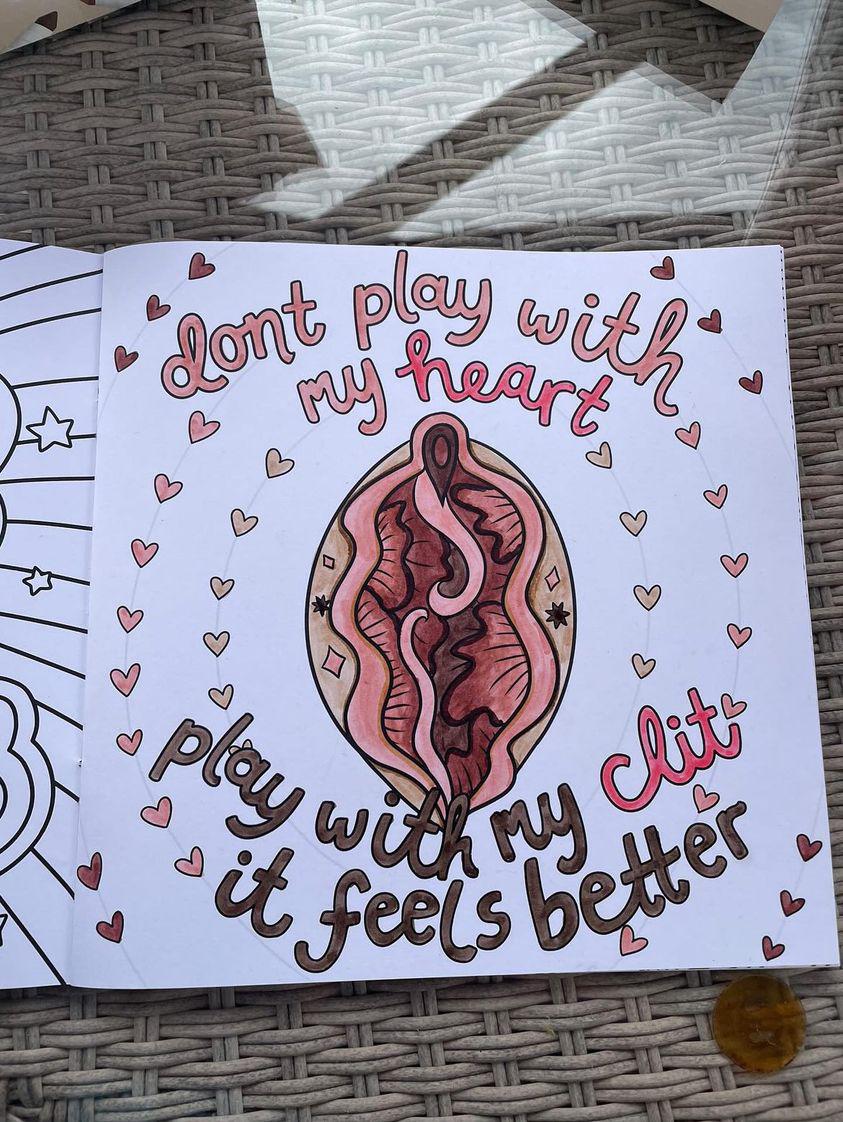 dont play with
my heart
play with my clit
it feels better